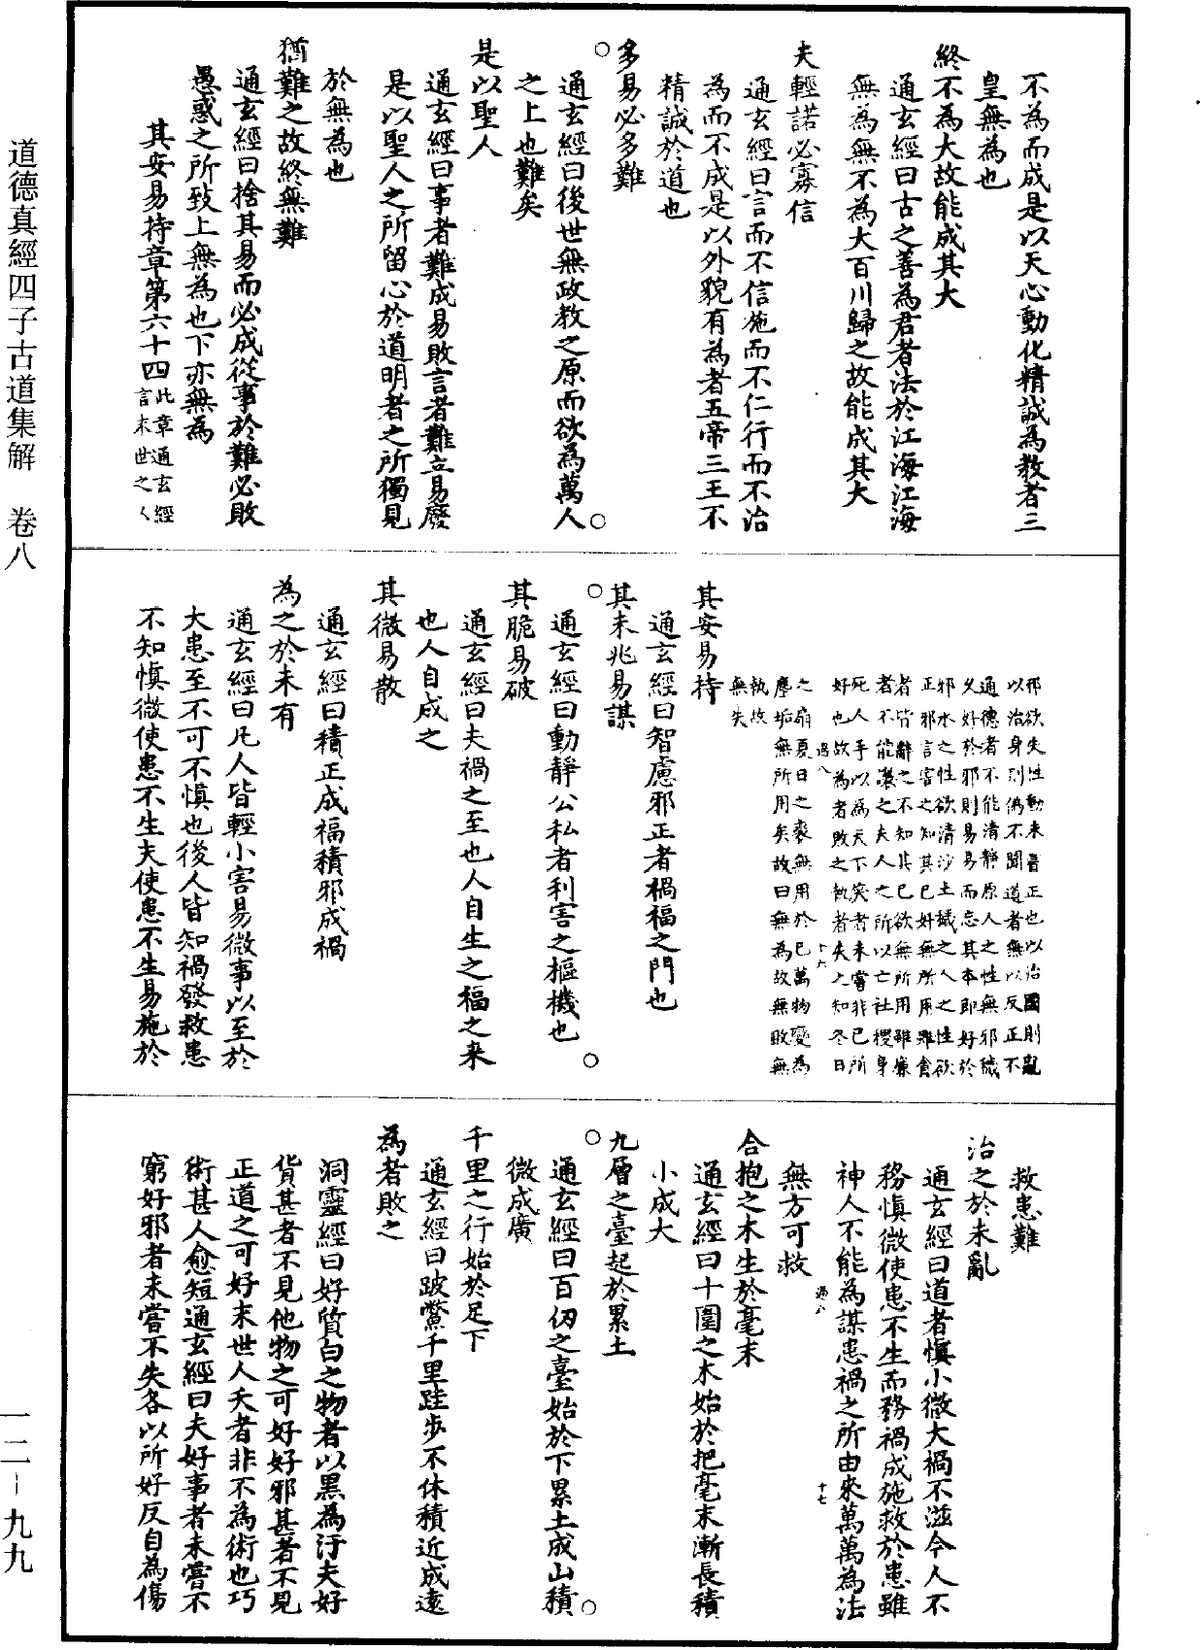 道德真經四子古道集解　卷八
一二－九九
不為而成是以天心動化精誠為教者三
皇無為也
終不為大故能成其大
通玄經曰古之善為君者法於江海江海
無為無不為大百川歸之故能成其大
夫輕諾必寡信
通玄經曰言而不信施而不仁行而不治
為而不成是以外貌有為者五帝三王不
精誠於道也
多易必多難
通玄經曰後世無政教之原而欲為萬人
之上也難矣
是以聖人
通玄經曰事者難成易敗言者難立易廢
是以聖人之所留心於道明者之所獨見
於無為也
猶難之故終無難
通玄經曰捨其易而必成從事於難必敗
愚惑之所致上無為也下亦無為
其安易持章第六十四
此章通玄經
言末世之人
邪欲失性動未嘗正也以治國則亂
以治身則偽不聞道者無以反正不
通德者不能清靜原人之性無邪穢
久好於邪則易易而忘其本即好於
邪水之性欲清沙土穢之人之性欲
正邪言害之知其已好無所用雖貪
者皆辭之不知其已欲無所用雖廉
者不能讓之夫人之所以亡社稷身
死人手以為天下笑者未嘗非已所
好也故為者敗之執者失之知冬日
過八　十六
之扇夏日之裘無用於已萬物變為
塵垢無所用矣故曰無為故無敗無
執故
無失
其安易持
通玄經曰智慮邪正者禍福之門也
其未兆易謀
通玄經曰動靜公私者利害之樞機也
其脆易破
通玄經曰夫禍之至也人自生之福之來
也人自成之
其微易散
通玄經曰積正成福積邪成禍
為之於未有
通玄經曰凡人皆輕小害易微事以至於
大患至不可不慎也後人皆知禍發救患
不知慎微使患不生夫使患不生易施於
救患難
治之於未亂
通玄經曰道者慎小微大禍不滋今人不
務慎微使患不生而務禍成施救於患雖
神人不能為謀患禍之所由來萬萬為法
過八　十七
無方可救
合抱之木生於毫末
通玄經曰十圍之木始於把毫末漸長積
小成大
九層之臺起於累土
通玄經曰百仞之臺始於下累土成山積
微成廣
千里之行始於足下
通玄經曰跛鱉千里跬步不休積近成遠
為者敗之
洞靈經曰好質白之物者以黑為汙夫好
貨甚者不見他物之可好好邪甚者不見
正道之可好末世人夭者非不為術也巧
術甚人愈短通玄經曰夫好事者未嘗不
窮好邪者未嘗不失各以所好反自為傷